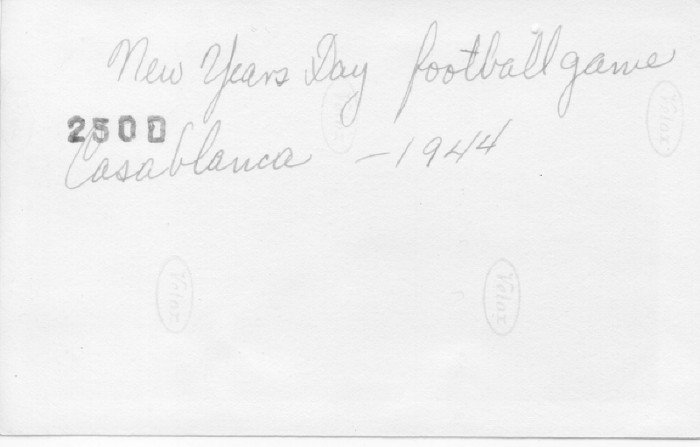 New Years Day football game
250D
Casablanca - 1944
Velox
Velox
Velox
Velox